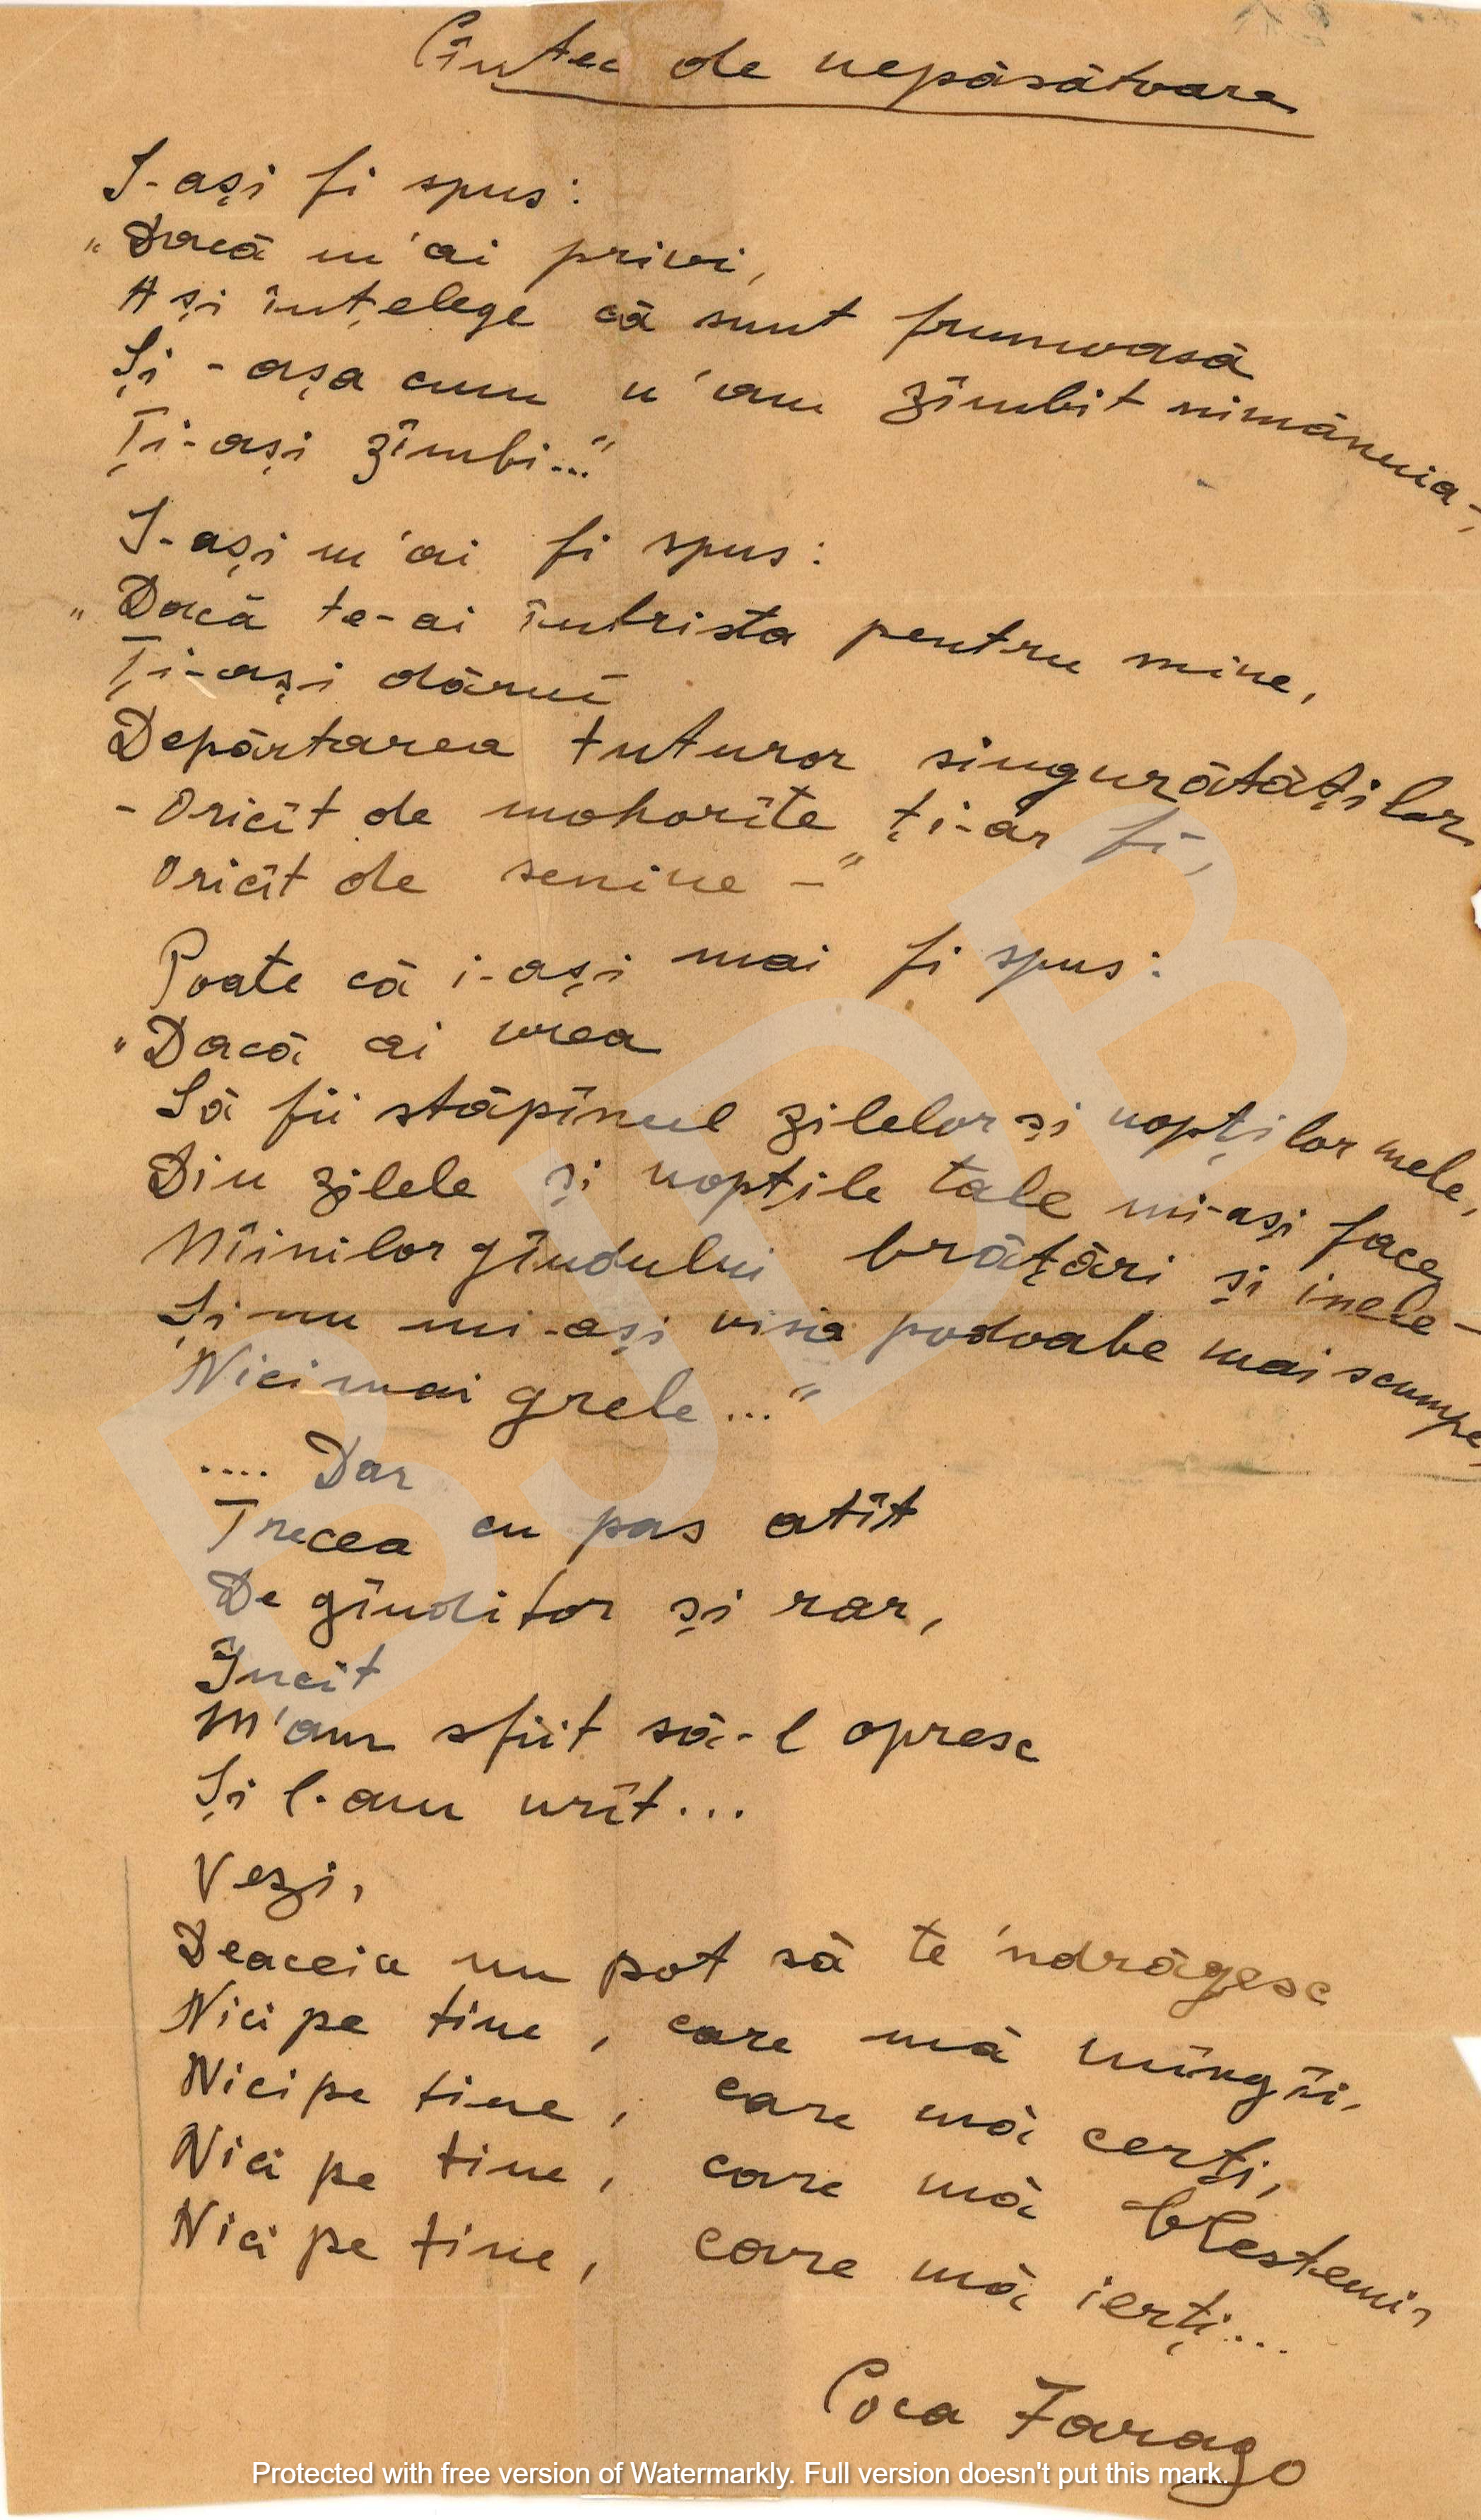 Cîntec de nepăsătoare
I-ași fi spus:
„Dacă m'ai privi,
Ași înțelege că sunt frumoasă
Și - așa cum n'am zîmbit nimănuia -,
Ți-ași zîmbi..."
I-ași m'ai fi spus:
„Dacă te-ai întrista pentru mine,
Ți-ași dărui
Depărtarea tuturor singurătăților
- Oricît de mohorîte ți-ar fi,
Oricît de senine -"
Poate că i-ași mai fi spus:
„Dacă ai vrea
Să fii stăpînul zilelor și nopților mele,
Din zilele și nopțile tale mi-ași face
Mîinilor gîndului brățări și inele -
Și nu mi-ași visa podoabe mai scumpe,
Nici mai grele..."
.... Dar
Trecea cu pas atît
De gînditor și rar,
Încît
M'am sfiit să-l opresc
Și l-am urît...
Vezi,
Deaceia nu pot să te 'ndrăgesc
Nici pe tine, care mă mîngîi,
Nici pe tine, care mă cerți,
Nici pe tine, care mă blestemi,
Nici pe tine, care mă ierți...
Coca Farago
BJDB
Protected with free version of Watermarkly. Full version doesn't put this mark.